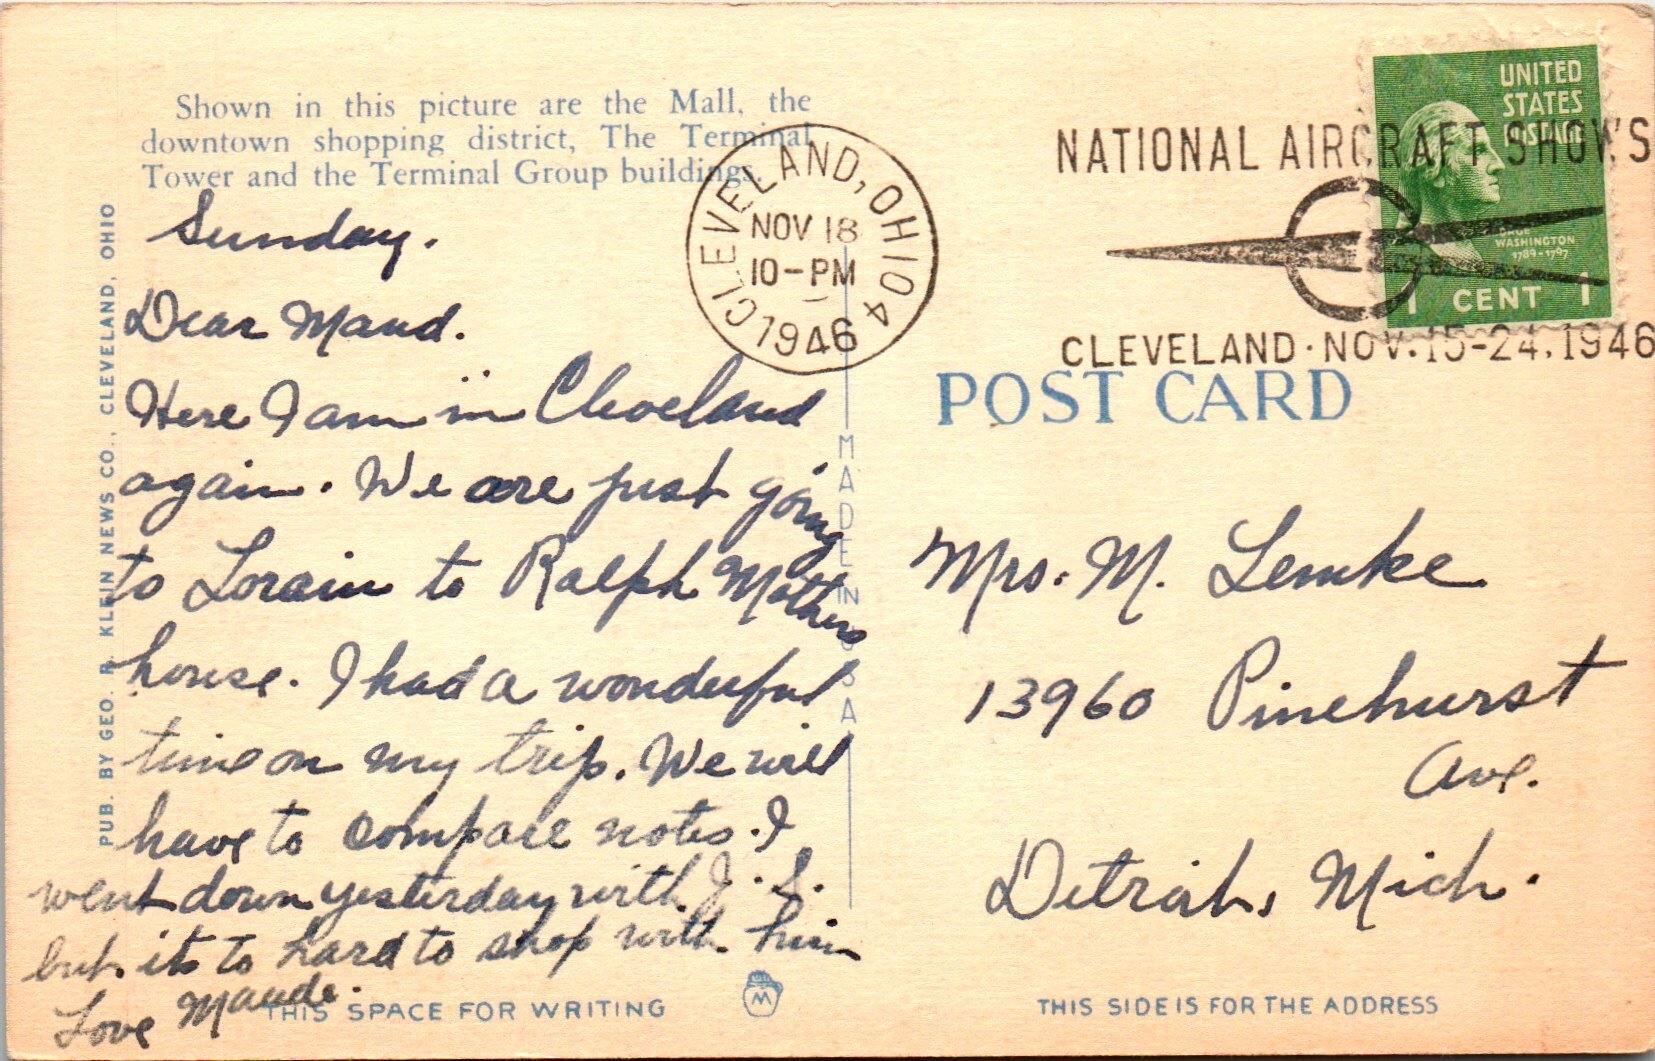 Shown in this picture are the Mall, the
downtown shopping district, The Terminal
Tower and the Terminal Group buildings.
PUB. BY GEO. R. KLEIN NEWS CO., CLEVELAND, OHIO
Sunday.
Dear Maud.
Here I am in Cleveland
again. We are just going
to Lorain to Ralph Mothers
house. I had a wonderful
time on my trip. We will
have to compare notes. I
went down yesterday with J. S.
but its to hard to shop with him
Love Maude.
THIS SPACE FOR WRITING
M
MADE IN U S A
CLEVELAND, OHIO 4
NOV 18
10-PM
1946
NATIONAL AIRCRAFT SHOWS
CLEVELAND·NOV.15-24.1946
UNITED
STATES
POSTAGE
WASHINGTON
1789-1797
1 CENT 1
POST CARD
Mrs. M. Lemke
13960 Pinehurst
Ave.
Detroit, Mich.
THIS SIDE IS FOR THE ADDRESS